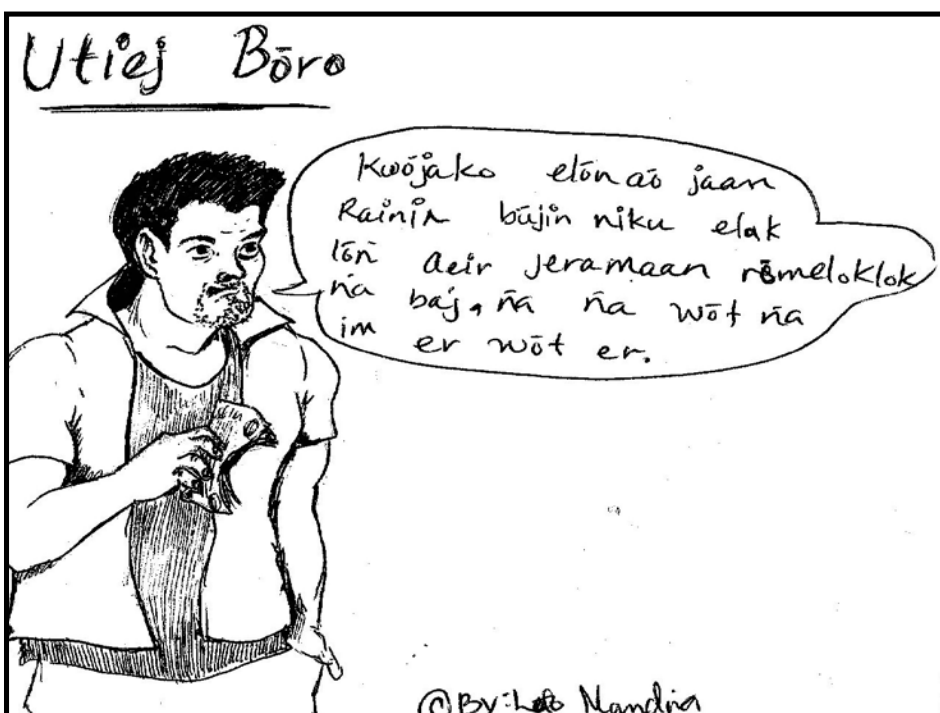 Utiej Bōro
Kwōjako elōn aō jaan
Rainin būjin niku elak
lōn aeir jeramaan rōmeloklok
ña baj, ña ña wōt ña
im er wōt er.
©BY: Mandia